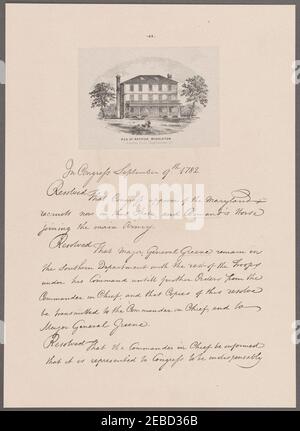 -49-
RES. OF ARTHUR MIDDLETON
In Congress September 9th. 1782
Resolved That Congress approve of the Maryland
recruits now in that State and Armand's Horse
joining the main Army.
Resolved That Major General Greene remain on
the Southern Department with the rest of the Troops
under his Command untill further Orders from the
Commander in Chief, and that Copies of this resolve
be transmitted to the Commander in Chief, and to
Major General Greene.
Resolved That the Commander in Chief be informed
that it is represented to Congress to be indispensibly
alamy
Image ID: 2EBD36B
www.alamy.com